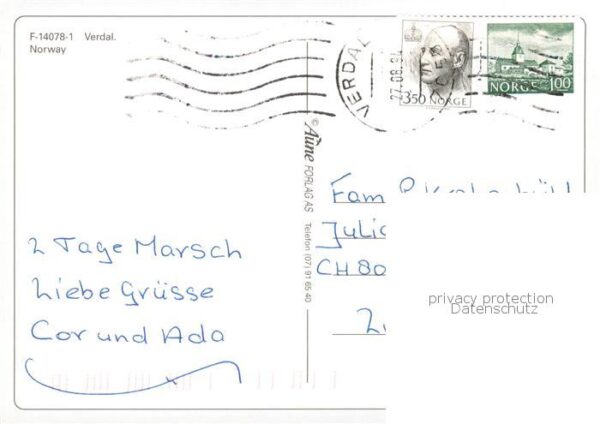 F-14078-1 Verdal.
Norway
VERDAL
27.08.
350 NORGE
NORGE 100
© Aune FORLAG AS Telefon (07) 91 65 40
Fam
Julia
CH 80
2 Tage Marsch
Liebe Grüsse
Cor und Ada
privacy protection
Datenschutz